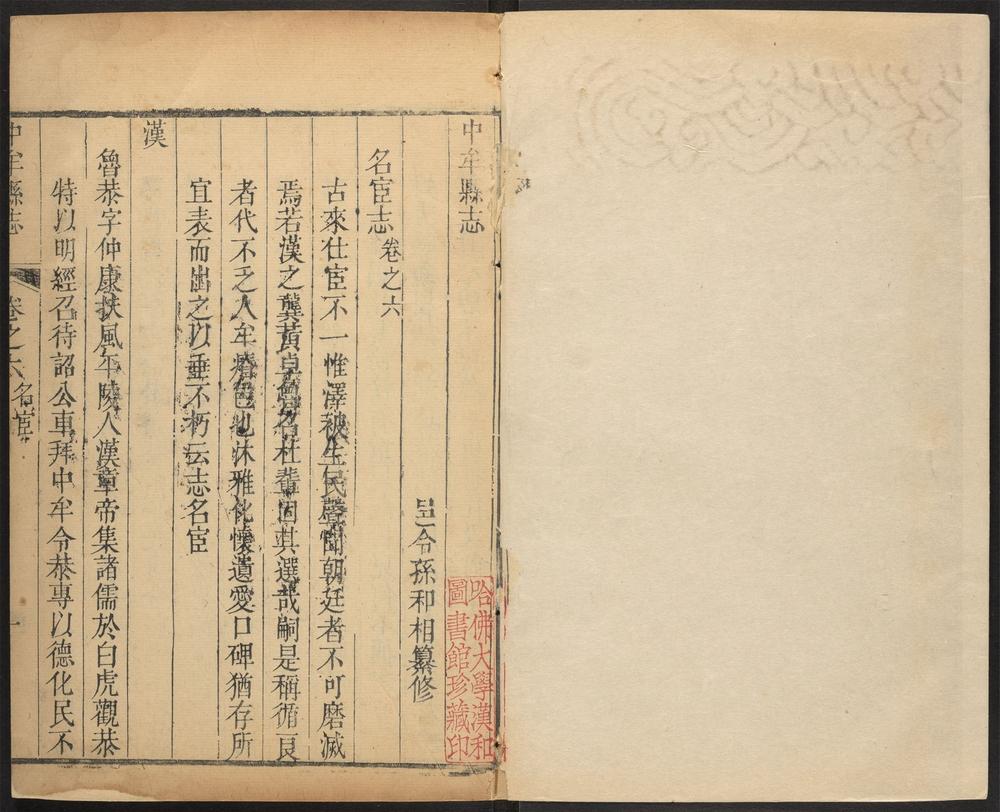 中牟縣志
邑令孫和相纂修
名宦志 卷之六
古來仕宦不一惟澤被生民聲聞朝廷者不可磨滅
焉若漢之龔黃卓魯召杜輩固其選哉嗣是稱循良
者代不乏人牟瘠邑也沐雅化懷遺愛口碑猶存所
宜表而出之以垂不朽云志名宦
漢
魯恭字仲康扶風平陵人漢章帝集諸儒於白虎觀恭
特以明經召待詔公車拜中牟令恭專以德化民不
中牟縣志 卷之六 名宦 一
哈佛大學漢和
圖書館珍藏印